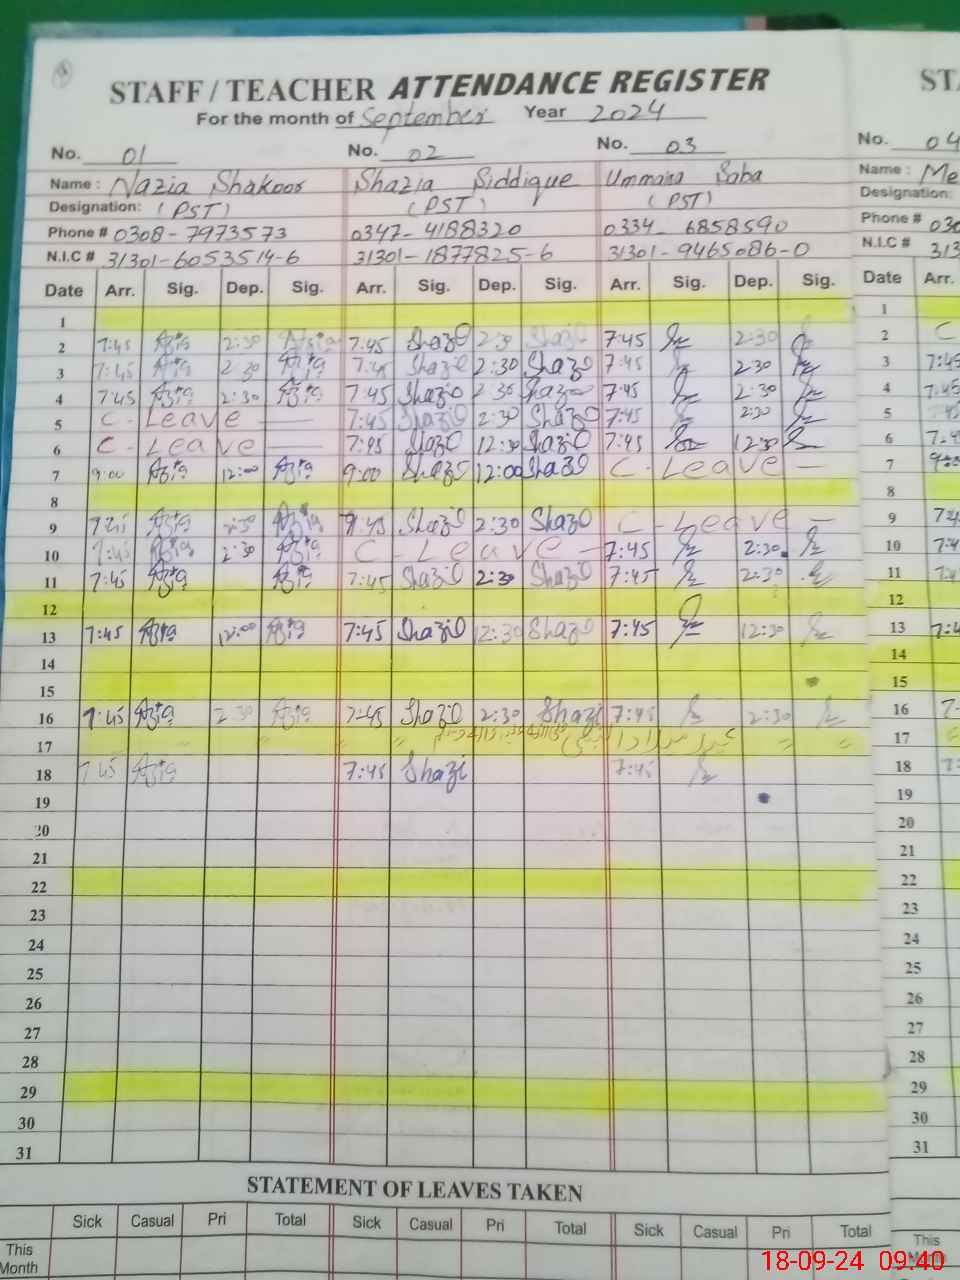 STAFF / TEACHER ATTENDANCE REGISTER
For the month of September Year 2024
No. 01 No. 02 No. 03 No. 04
Name : Nazia Shakoor Shazia Siddique Ummana Saba Name : Me
Designation: (PST) (PST) (PST) Designation:
Phone # 0308-7973573 0347-4188320 0334-6858590 Phone # 030
N.I.C # 31301-6053514-6 31301-1877825-6 31301-9465086-0 N.I.C # 313
Date Arr. Sig. Dep. Sig. Arr. Sig. Dep. Sig. Arr. Sig. Dep. Sig. Date Arr.
1 1
2 7:45 2:30 7:45 Shazi 2:30 Shazi 7:45 2:30 2 C
3 7:45 2:30 7:45 Shazi 2:30 Shazi 7:45 2:30 3 7:45
4 7:45 2:30 7:45 Shazi 2:30 Shazi 7:45 2:30 4 7:45
5 C - Leave 7:45 Shazi 2:30 Shazi 7:45 2:30 5 7:45
6 C - Leave 7:45 Shazi 12:30 Shazi 7:45 12:30 6 7:4
7 9:00 12:00 9:00 Shazi 12:00 Shazi C - Leave 7
8 8
9 7:45 2:30 7:45 Shazi 2:30 Shazi C - Leave 9 7:4
10 7:45 2:30 C - Leave 7:45 2:30 10 7:4
11 7:45 7:45 Shazi 2:30 Shazi 7:45 2:30 11 7:4
12 12
13 7:45 12:00 7:45 Shazi 12:30 Shazi 7:45 12:30 13 7:4
14 14
15 15
16 7:45 2:30 7:45 Shazi 2:30 Shazi 7:45 2:30 16 7
17 " " " عید میلادالنبی " " 17
18 7:45 7:45 Shazi 7:45 18 7:
19 19
20 20
21 21
22 22
23 23
24 24
25 25
26 26
27 27
28 28
29 29
30 30
31 31
STATEMENT OF LEAVES TAKEN
Sick Casual Pri Total Sick Casual Pri Total Sick Casual Pri Total
This Month This Month
18-09-24 09:40